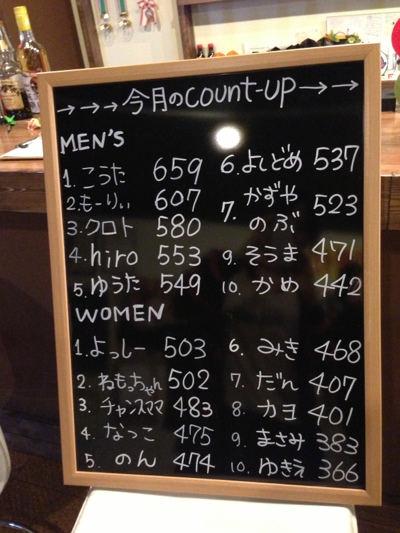 →→→今月のcount-up→→
MEN'S
1. こうた 659
2. もーりぃ 607
3. クロト 580
4. hiro 553
5. ゆうた 549
6. よしどめ 537
7. かずや
のぶ 523
9. そうま 471
10. かめ 442
WOMEN
1. よっしー 503
2. ねもっちゃん 502
3. チャンスママ 483
4. なっこ 475
5. のん 474
6. みき 468
7. だん 407
8. カヨ 401
9. まさみ 383
10. ゆきえ 366